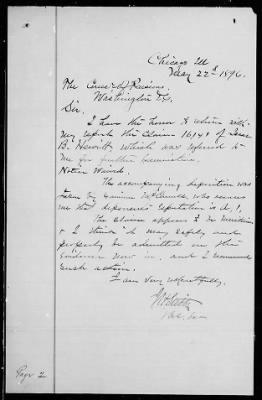 Chicago Ill
May 22d 1896.
The Com'r of Pensions,
Washington D.C.
Sir,
I have the honor to return with
my report the Claim 16149 of Isaac
B. Hewitt which was referred to
me for further examination.
Notice Waived.
The accompanying deposition was
taken by Examiner who assures
me that deponents reputation is A.1.
The claim appears to be meritorious
& I think it may safely and
properly be admitted on the
Evidence now in, and I recommend
such action.
I am very respectfully,
Spc. Exr
Page 2